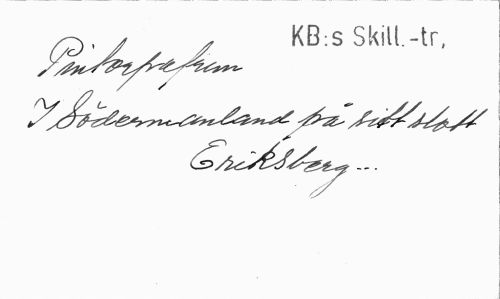 KB:s Skill.-tr,
Pintorpafrun
I Södermanland på sitt slott
Eriksberg...